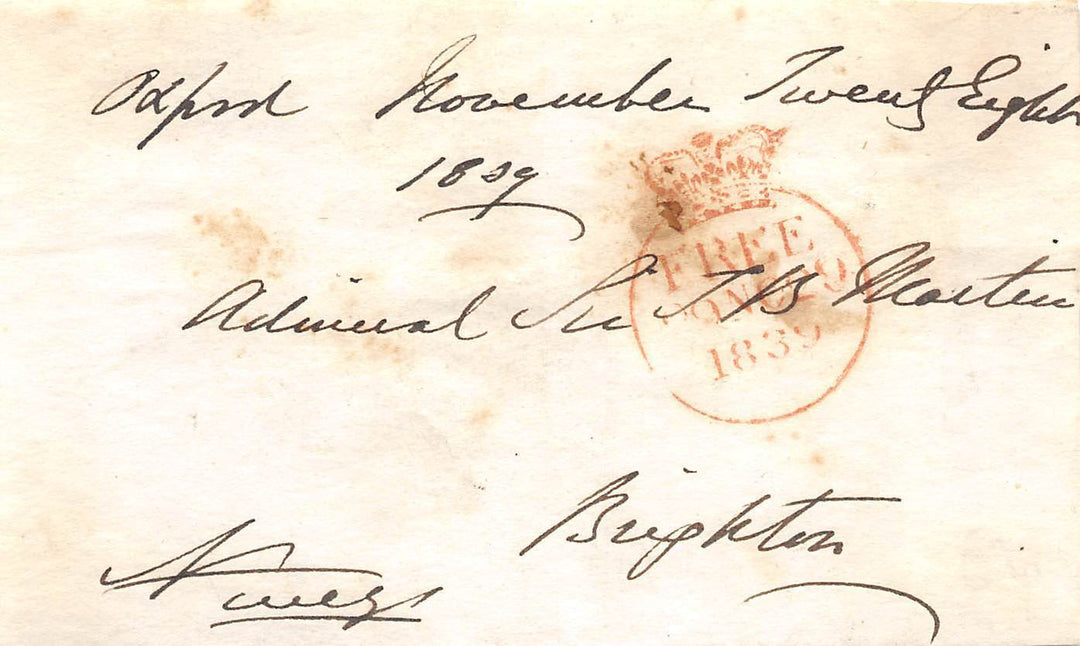 Oxford November Twenty Eight
1839
Admiral Sir T B Martin
FREE
29
1839
Brighton